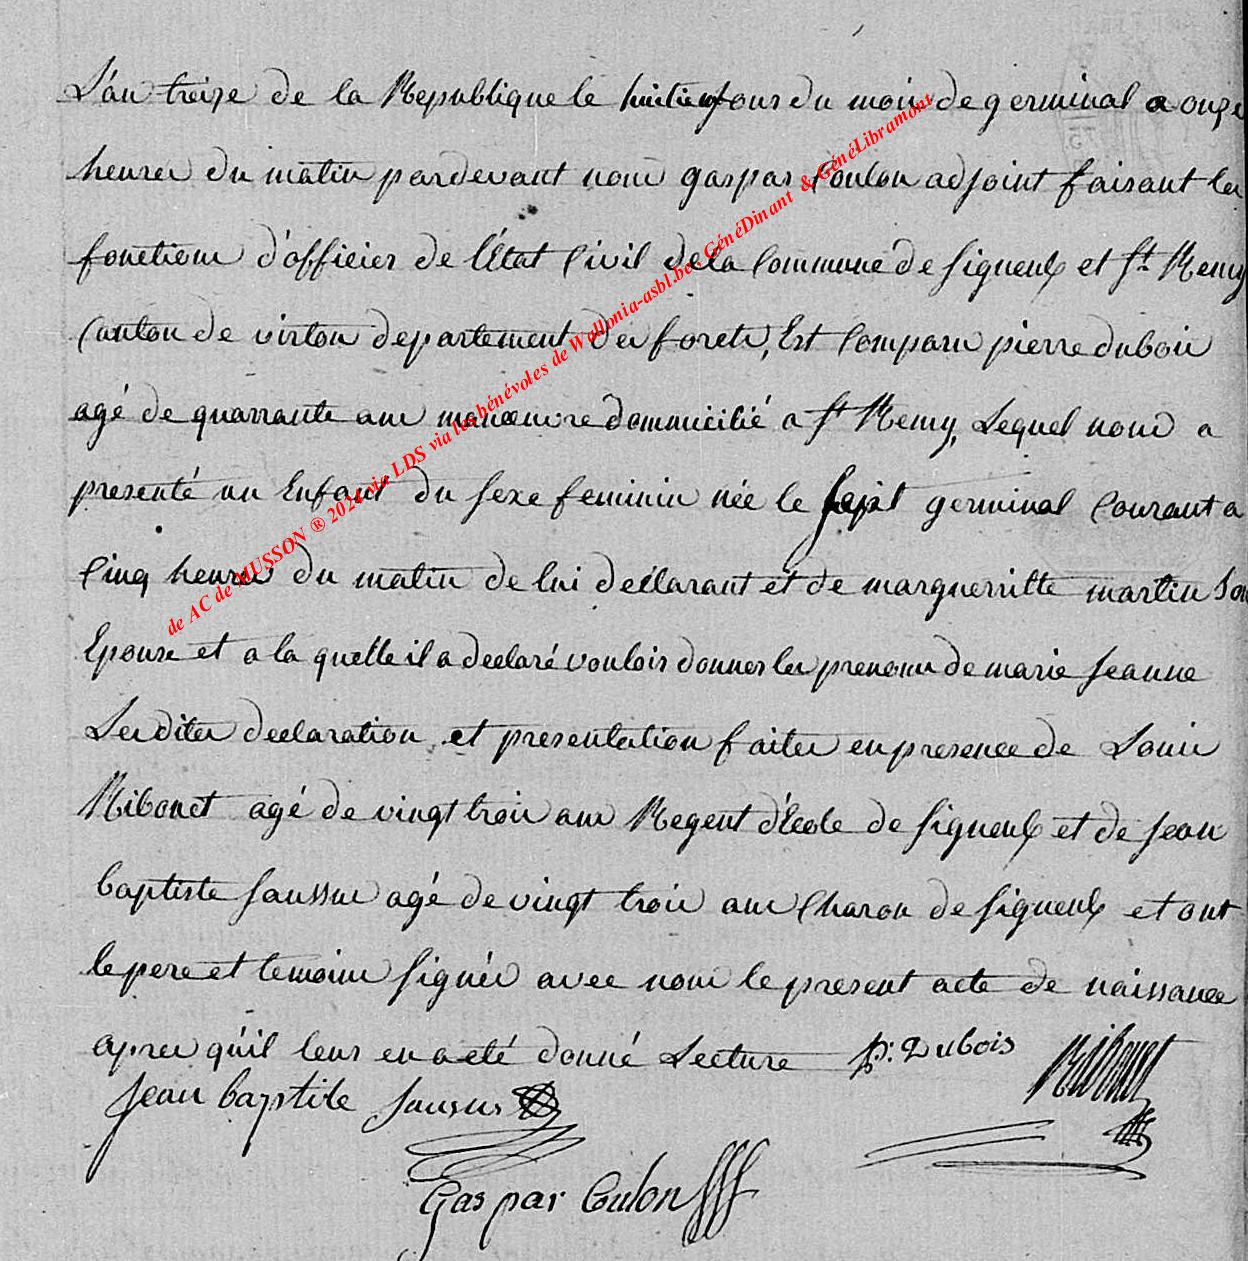 L'an treize de la Republique le huitieme Jour du mois de germinal a onze
heures du matin pardevant nous gaspar Coulon adjoint faisant les
fonctions d'officier de l'Etat Civil de la Commune de Signeulx et St. Remy
Canton de virton departement des forets, Est Comparu pierre dubois
agé de quarrante ans manoeuvre domicilié a St Remy, Lequel nous a
presenté un Enfant du sexe feminin née le sept germinal Courant a
Cinq heures du matin de lui declarant et de marguerritte martin Son
Epouse et a la quelle il a declaré vouloir donner les prenoms de marie Jeanne
Les dites declaration et presentation faites en presence de Louis
Ribonet agé de vingt trois ans Regent d'Ecole de Signeulx et de Jean
baptiste saussu agé de vingt trois ans Charon de Signeulx et ont
le pere et temoins signés avec nous le present acte de naissance
apres qu'il leur en a eté donné Lecture P: Dubois Ribonet
Jean baptiste
Gaspar Culon
de AC de MUSSON ® 2024 via LDS via les bénévoles de Wallonia-asbl.be : GénéDinant & GénéLibramont